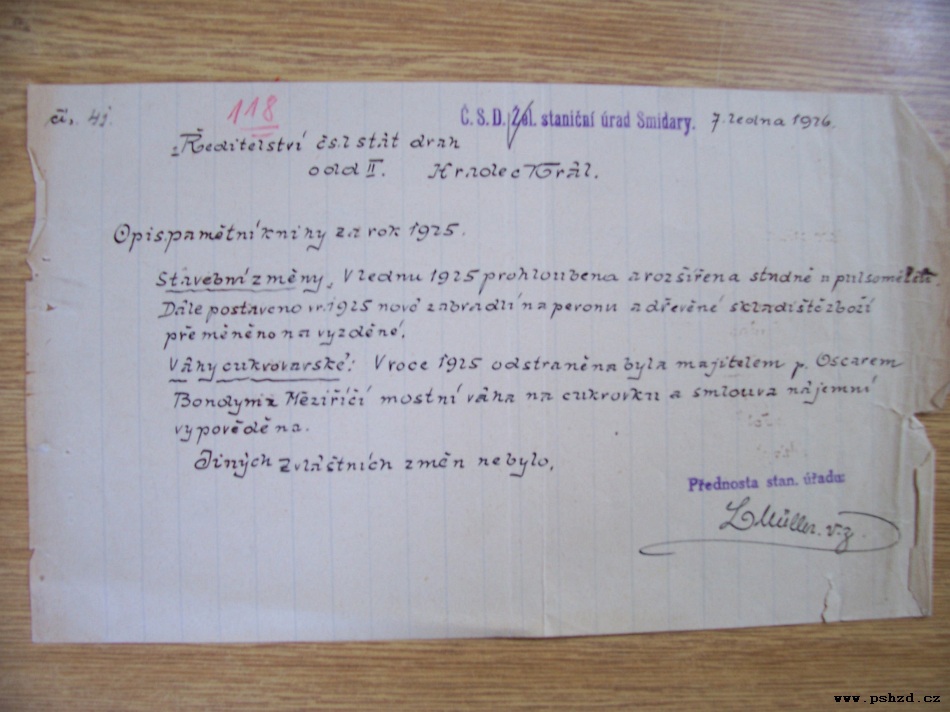 čí. 41.
118
Č. S. D. Žel. staniční úrad Smidary. 7. ledna 1926.
Ředitelství čsl stát drah
odd II. Hradec Král.
Opis pamětní knihy za rok 1925.
Stavební změny. V lednu 1925 prohloubena a rozšířena studně u pulsometru.
Dále postaveno v r. 1925 nové zabradlí na peronu a dřevěné skladiště zboží
přeměněno na vyzděné.
Váhy cukrovarské: V roce 1925 odstraněna byla majitelem p. Oscarem
Bondym z Měziříčí mostní váha na cukrovku a smlouva nájemní
vypověděna.
Jiných zvláštních změn nebylo.
Přednosta stan. úřadu:
Müller. v.z.
www.pshzd.cz